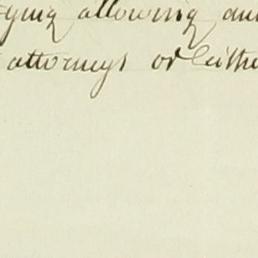 ying allowing and
attorneys or eithe